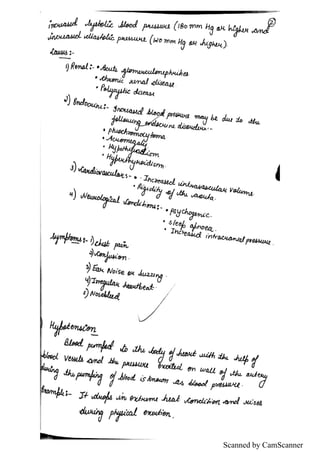 ②
increased systolic blood pressure (180 mm Hg or higher and
increased diastolic pressure (120 mm Hg or higher).
Causes :-
1) Renal: - • Acute glomerulonephrites
• chronic renal disease
• Polycystic disease
2) Endocrine: - Increased blood pressure may be due to the
following endocrine disorders--
• pheochromocytoma
• Acromegaly
• Hypothyroidism
• Hyperthyroidism
3) Cardiovascular: - • Increased intravascular volume
• Rigidity of the aorta.
4) Neurological conditions: - • psychogenic.
• sleep apnoea.
• Increased intracranial pressure.
Symptoms: - 1) chest pain
2) confusion.
3) Ear Noise or buzzing.
4) Irregular heartbeat.
5) Nosebleed
Hypotension
Blood pumped to the body of heart with the help of
blood vessels and the pressure exerted on wall of the artery
during the pumping of blood is known as blood pressure.
Example: - It drops in extreme heat condition and rises
during physical exertion.
Scanned by CamScanner